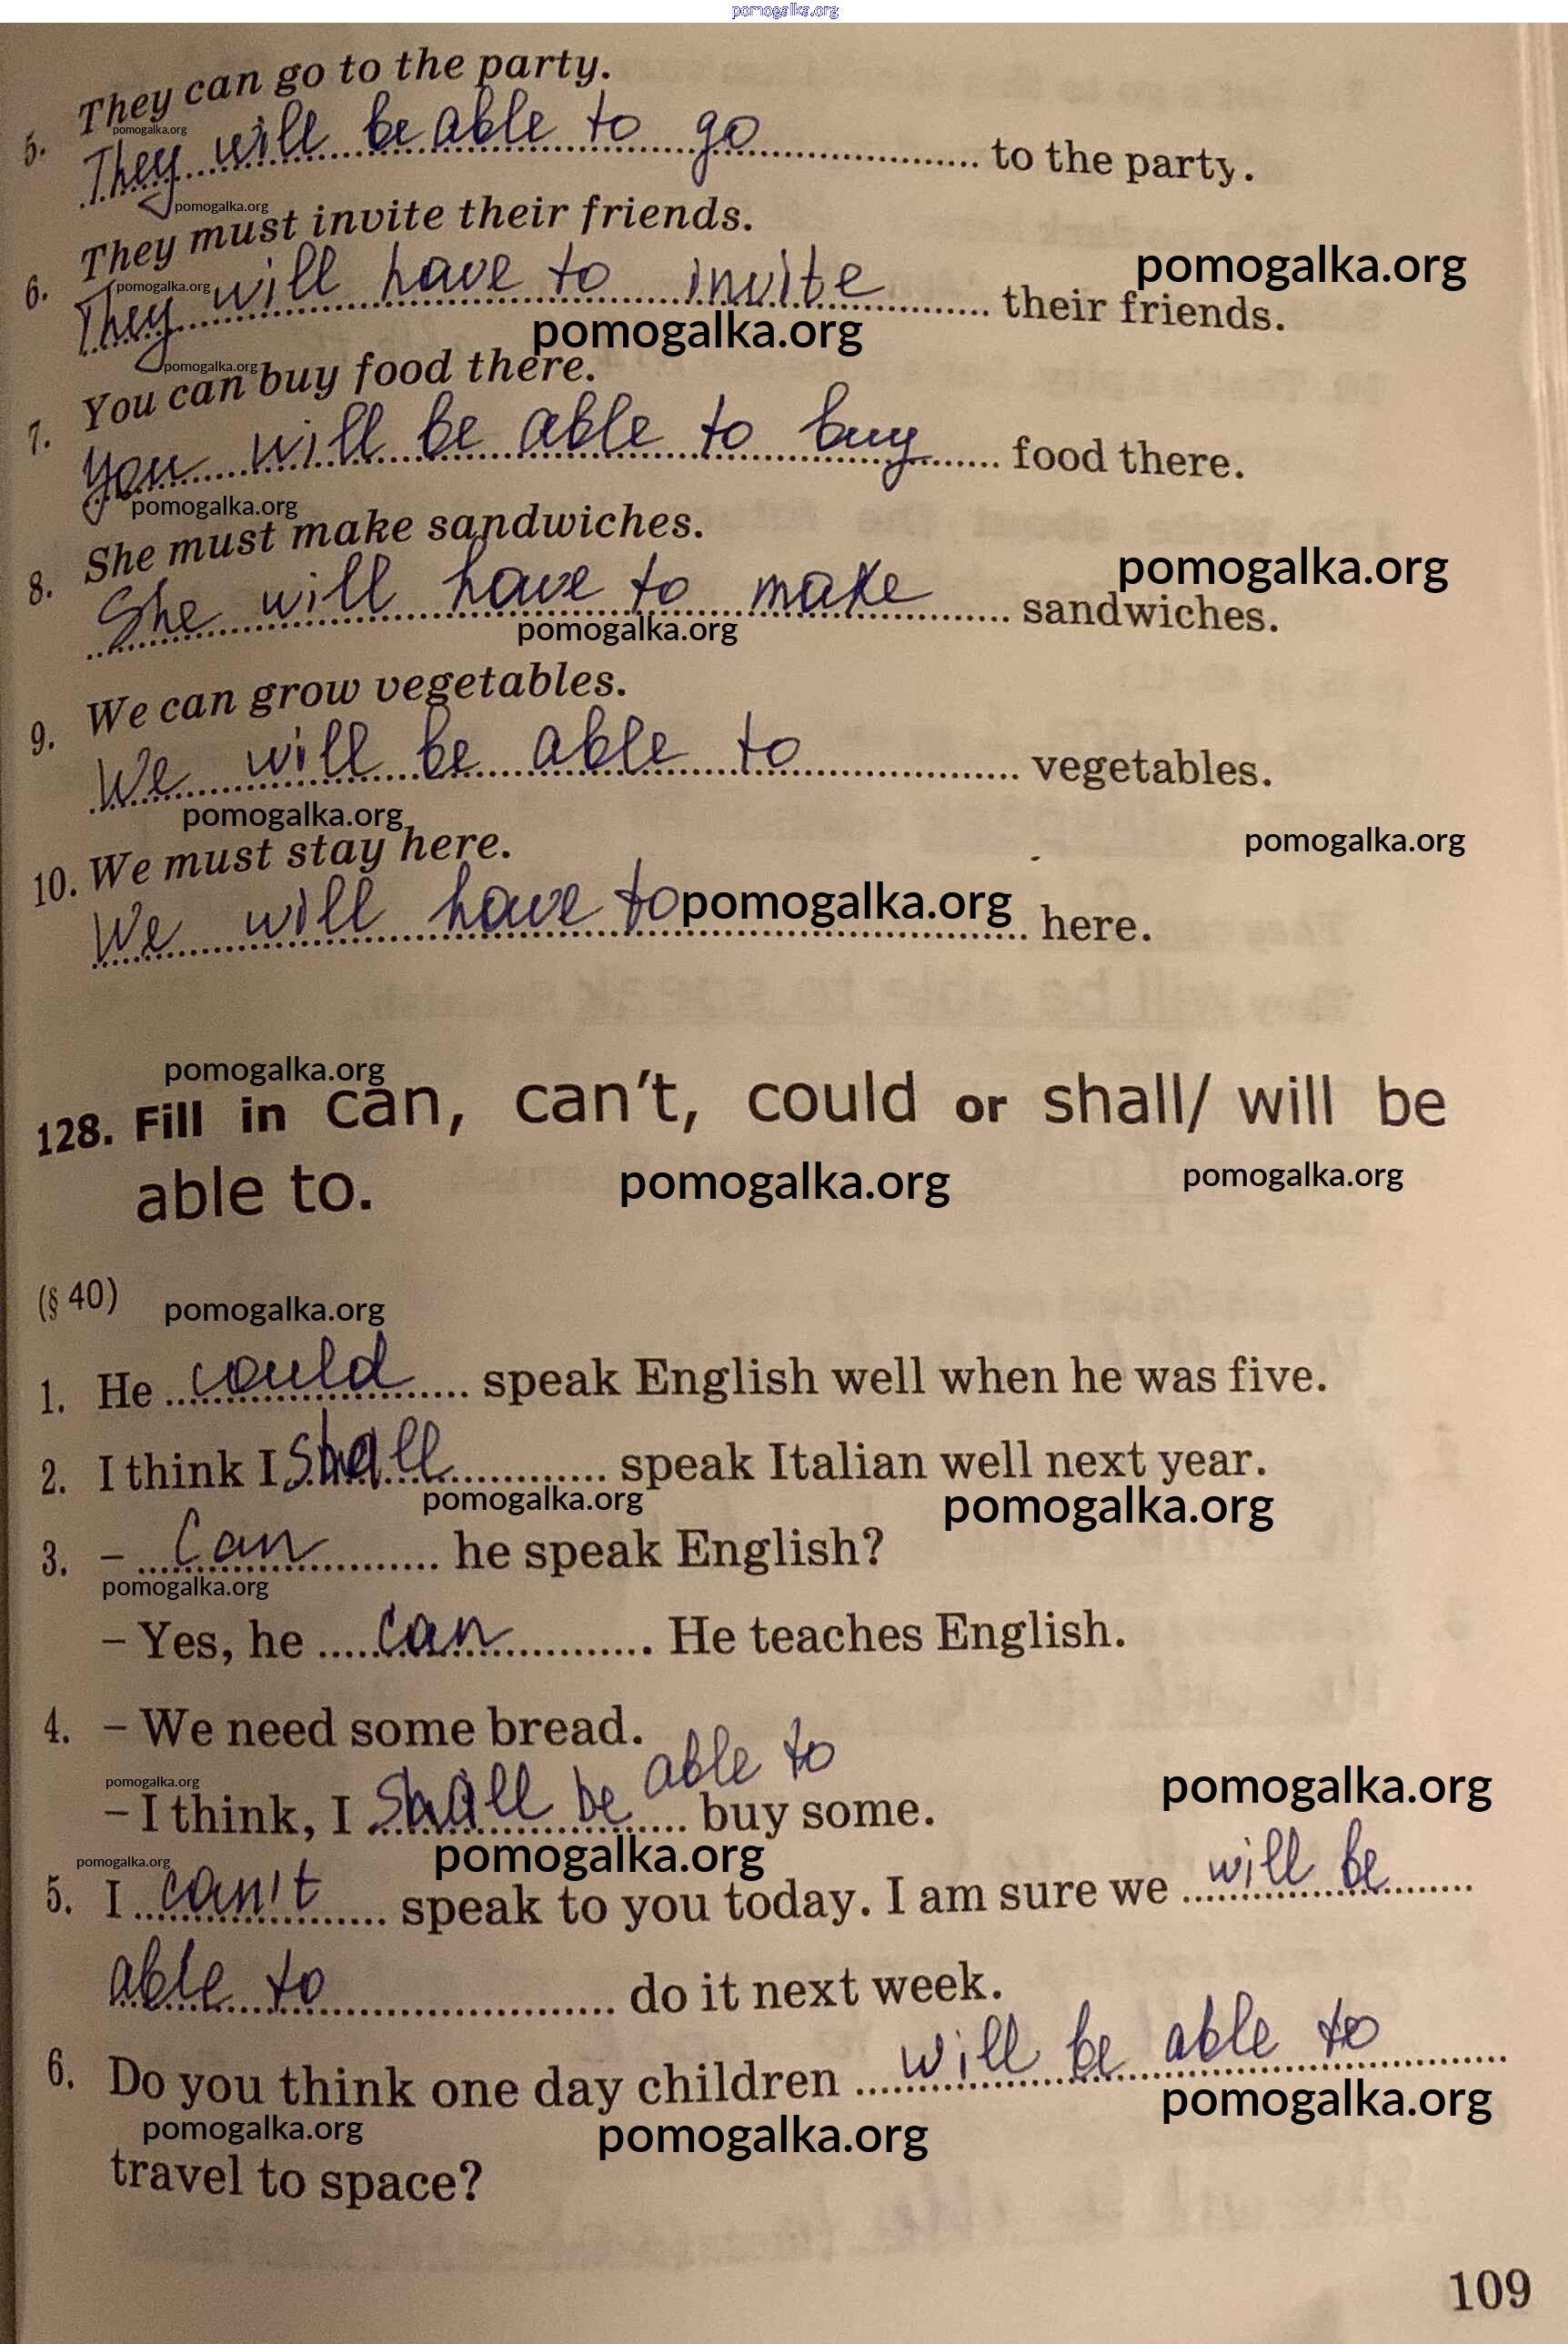 pomogalka.org
They can go to the party.
pomogalka.org
5. They will be able to go to the party.
pomogalka.org
They must invite their friends.
pomogalka.org
pomogalka.org
6. They will have to invite their friends.
pomogalka.org
pomogalka.org
You can buy food there.
7. You will be able to buy food there.
pomogalka.org
She must make sandwiches.
pomogalka.org
8. She will have to make sandwiches.
pomogalka.org
We can grow vegetables.
9. We will be able to vegetables.
pomogalka.org
pomogalka.org
10. We must stay here.
We will have to pomogalka.org here.
pomogalka.org
128. Fill in can, can't, could or shall/ will be
able to.
pomogalka.org
pomogalka.org
(§ 40)
pomogalka.org
1. He could speak English well when he was five.
2. I think I shall speak Italian well next year.
pomogalka.org
pomogalka.org
3. – Can he speak English?
pomogalka.org
– Yes, he can. He teaches English.
4. – We need some bread.
pomogalka.org
pomogalka.org
– I think, I shall be able to buy some.
pomogalka.org
pomogalka.org
5. I can't speak to you today. I am sure we will be
able to do it next week.
6. Do you think one day children will be able to
pomogalka.org
pomogalka.org
pomogalka.org
travel to space?
109